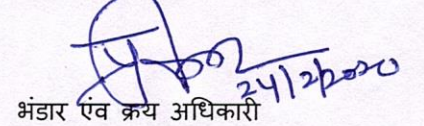 24/2/2020
भंडार एंव क्रय अधिकारी